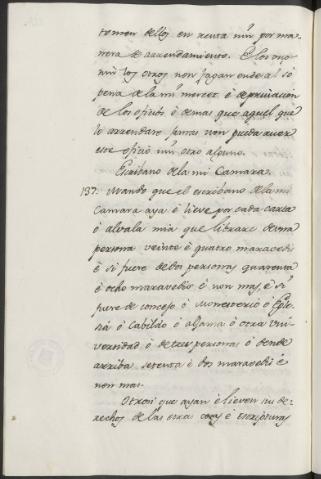 tomen dellos en renta nin por ma
nera de arrendamiento. E los uno
nin los otros non fagan ende al so
pena dela mi merced é de privacion
de los oficios é demas que aquel que
lo arrendare jamas non pueda aver
ese oficio nin otro alguno.
Escribano dela mi Camara.
137. Mando que el escribano dela mi
Camara aya é lieve por cada carta
ó alvala mia que librare de una
persona veinte é quatro maravedis
é si fuere de dos personas quarenta
é ocho maravedis é non mas, é si
fuere de concejo ó Monesterio ó Egle
sia ó Cabildo ó aljama ó otra uni
versidad ó de tres personas ó dende
arriba setenta é dos maravedis é
non mas.
Otrosi que ayan é lieven su de
rechos de las otras cosas é escripturas